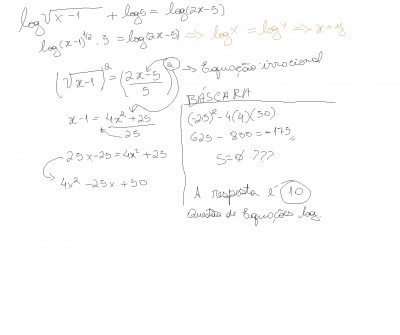 log √x-1 + log5 = log(2x-5)
log(x-1)^1/2 . 5 = log(2x-5) ⇒ logˣ = logʸ ⇒ x = y
(√x-1)² = (2x-5/5)² → Equação irracional
x-1 = 4x²+25/25
25x-25 = 4x²+25
4x² -25x +50
BÁSCARA
(-25)² -4(4)(50)
625 - 800 = -175
S=∅ ???
A resposta é 10
Questão de Equações log